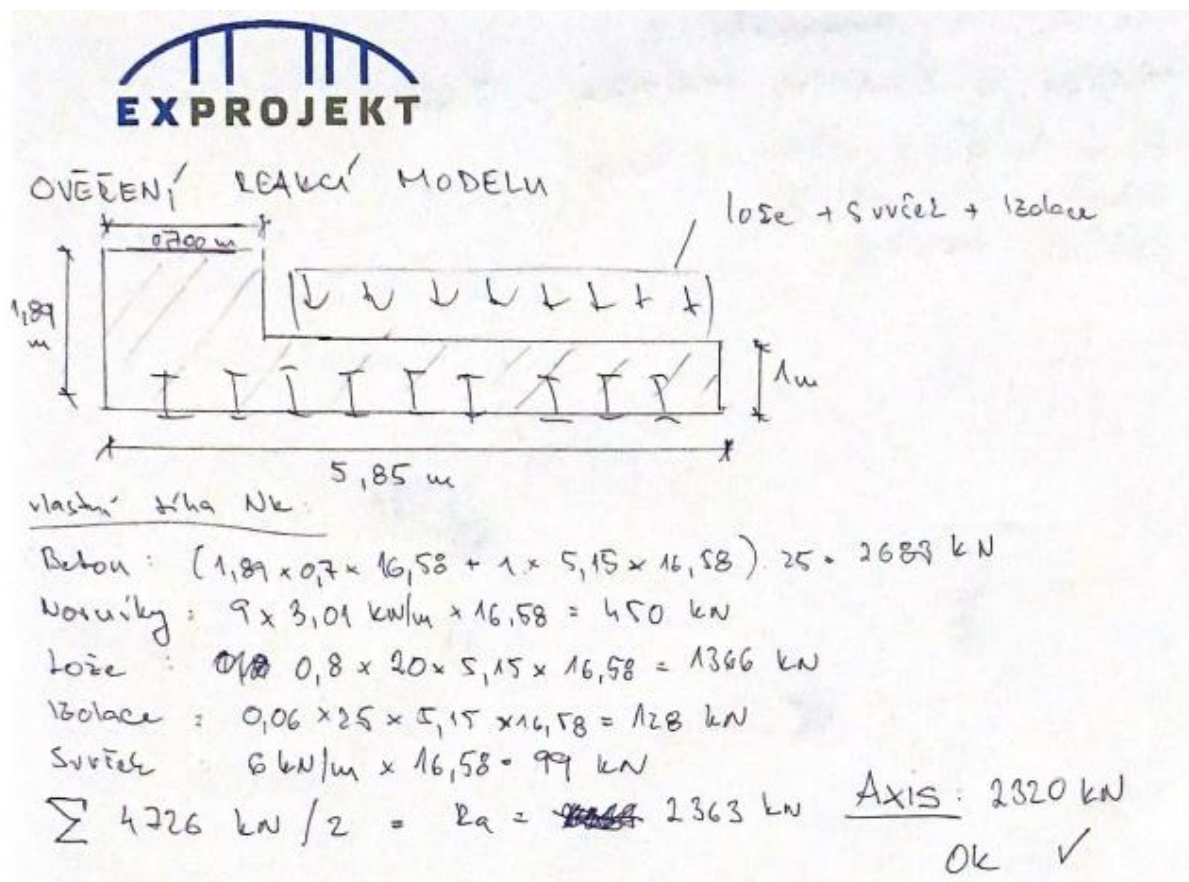 EXPROJEKT
OVĚŘENÍ REAKCÍ MODELU
lože + svršek + izolace
0,700 m
1,89 m
1 m
5,85 m
vlastní tíha Nk:
Beton : (1,89 x 0,7 x 16,58 + 1 x 5,15 x 16,58) . 25 = 2683 kN
Nosníky : 9 x 3,01 kN/m x 16,58 = 450 kN
Lože : 0,8 x 20 x 5,15 x 16,58 = 1366 kN
Izolace : 0,06 x 25 x 5,15 x 16,58 = 128 kN
Svršek 6 kN/m x 16,58 = 99 kN
∑ 4726 kN /2 = Ra = 2363 kN
Axis : 2320 kN
Ok ✓